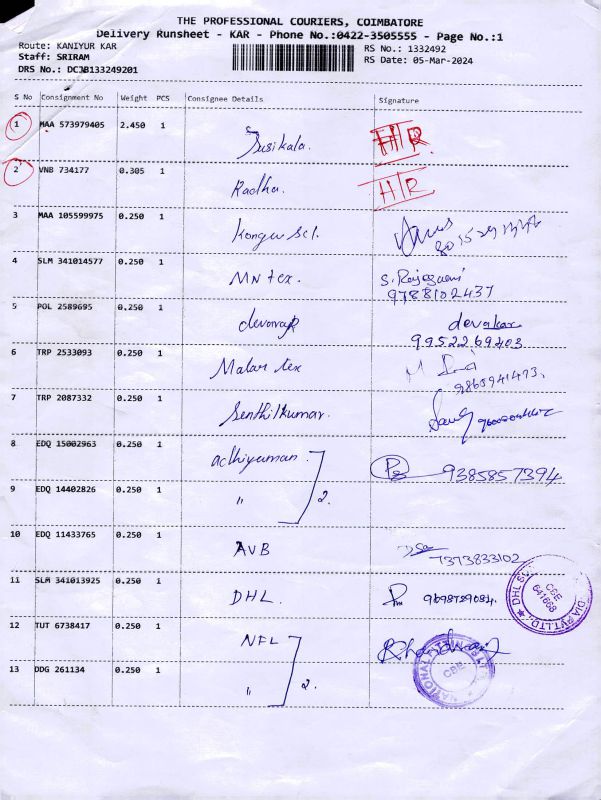 THE PROFESSIONAL COURIERS, COIMBATORE
Delivery Runsheet - KAR - Phone No.:0422-3505555 - Page No.:1
Route: KANIYUR KAR RS No.: 1332492
Staff: SRIRAM RS Date: 05-Mar-2024
DRS No.: DCJB133249201
S No Consignment No Weight PCS Consignee Details Signature
1 MAA 573979405 2.450 1 Susikala. H/R
2 VNB 734177 0.305 1 Radha. H/R
3 MAA 105599975 0.250 1 Kongu scl.
4 SLM 341014577 0.250 1 MN tex. S. Rajagani
9788102437
5 POL 2589695 0.250 1 devaraj devakar
9952269403
6 TRP 2533093 0.250 1 Malar tex
9865941473.
7 TRP 2087332 0.250 1 Senthilkumar.
8 EDQ 15002963 0.250 1 adhiyaman 9385857394
9 EDQ 14402826 0.250 1 " 2.
10 EDQ 11433765 0.250 1 AVB
7373833102
11 SLM 341013925 0.250 1 DHL.
DHL CBE 641668 PVT.LTD.
12 TUT 6738417 0.250 1 NFL
13 DDG 261134 0.250 1 " 2.
NATIONAL FITTINGS LTD CBE.